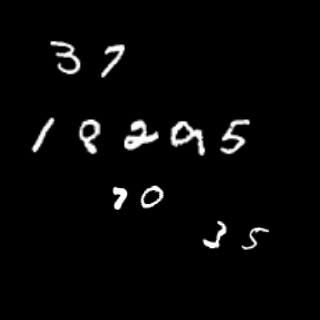 37
18295
70
35